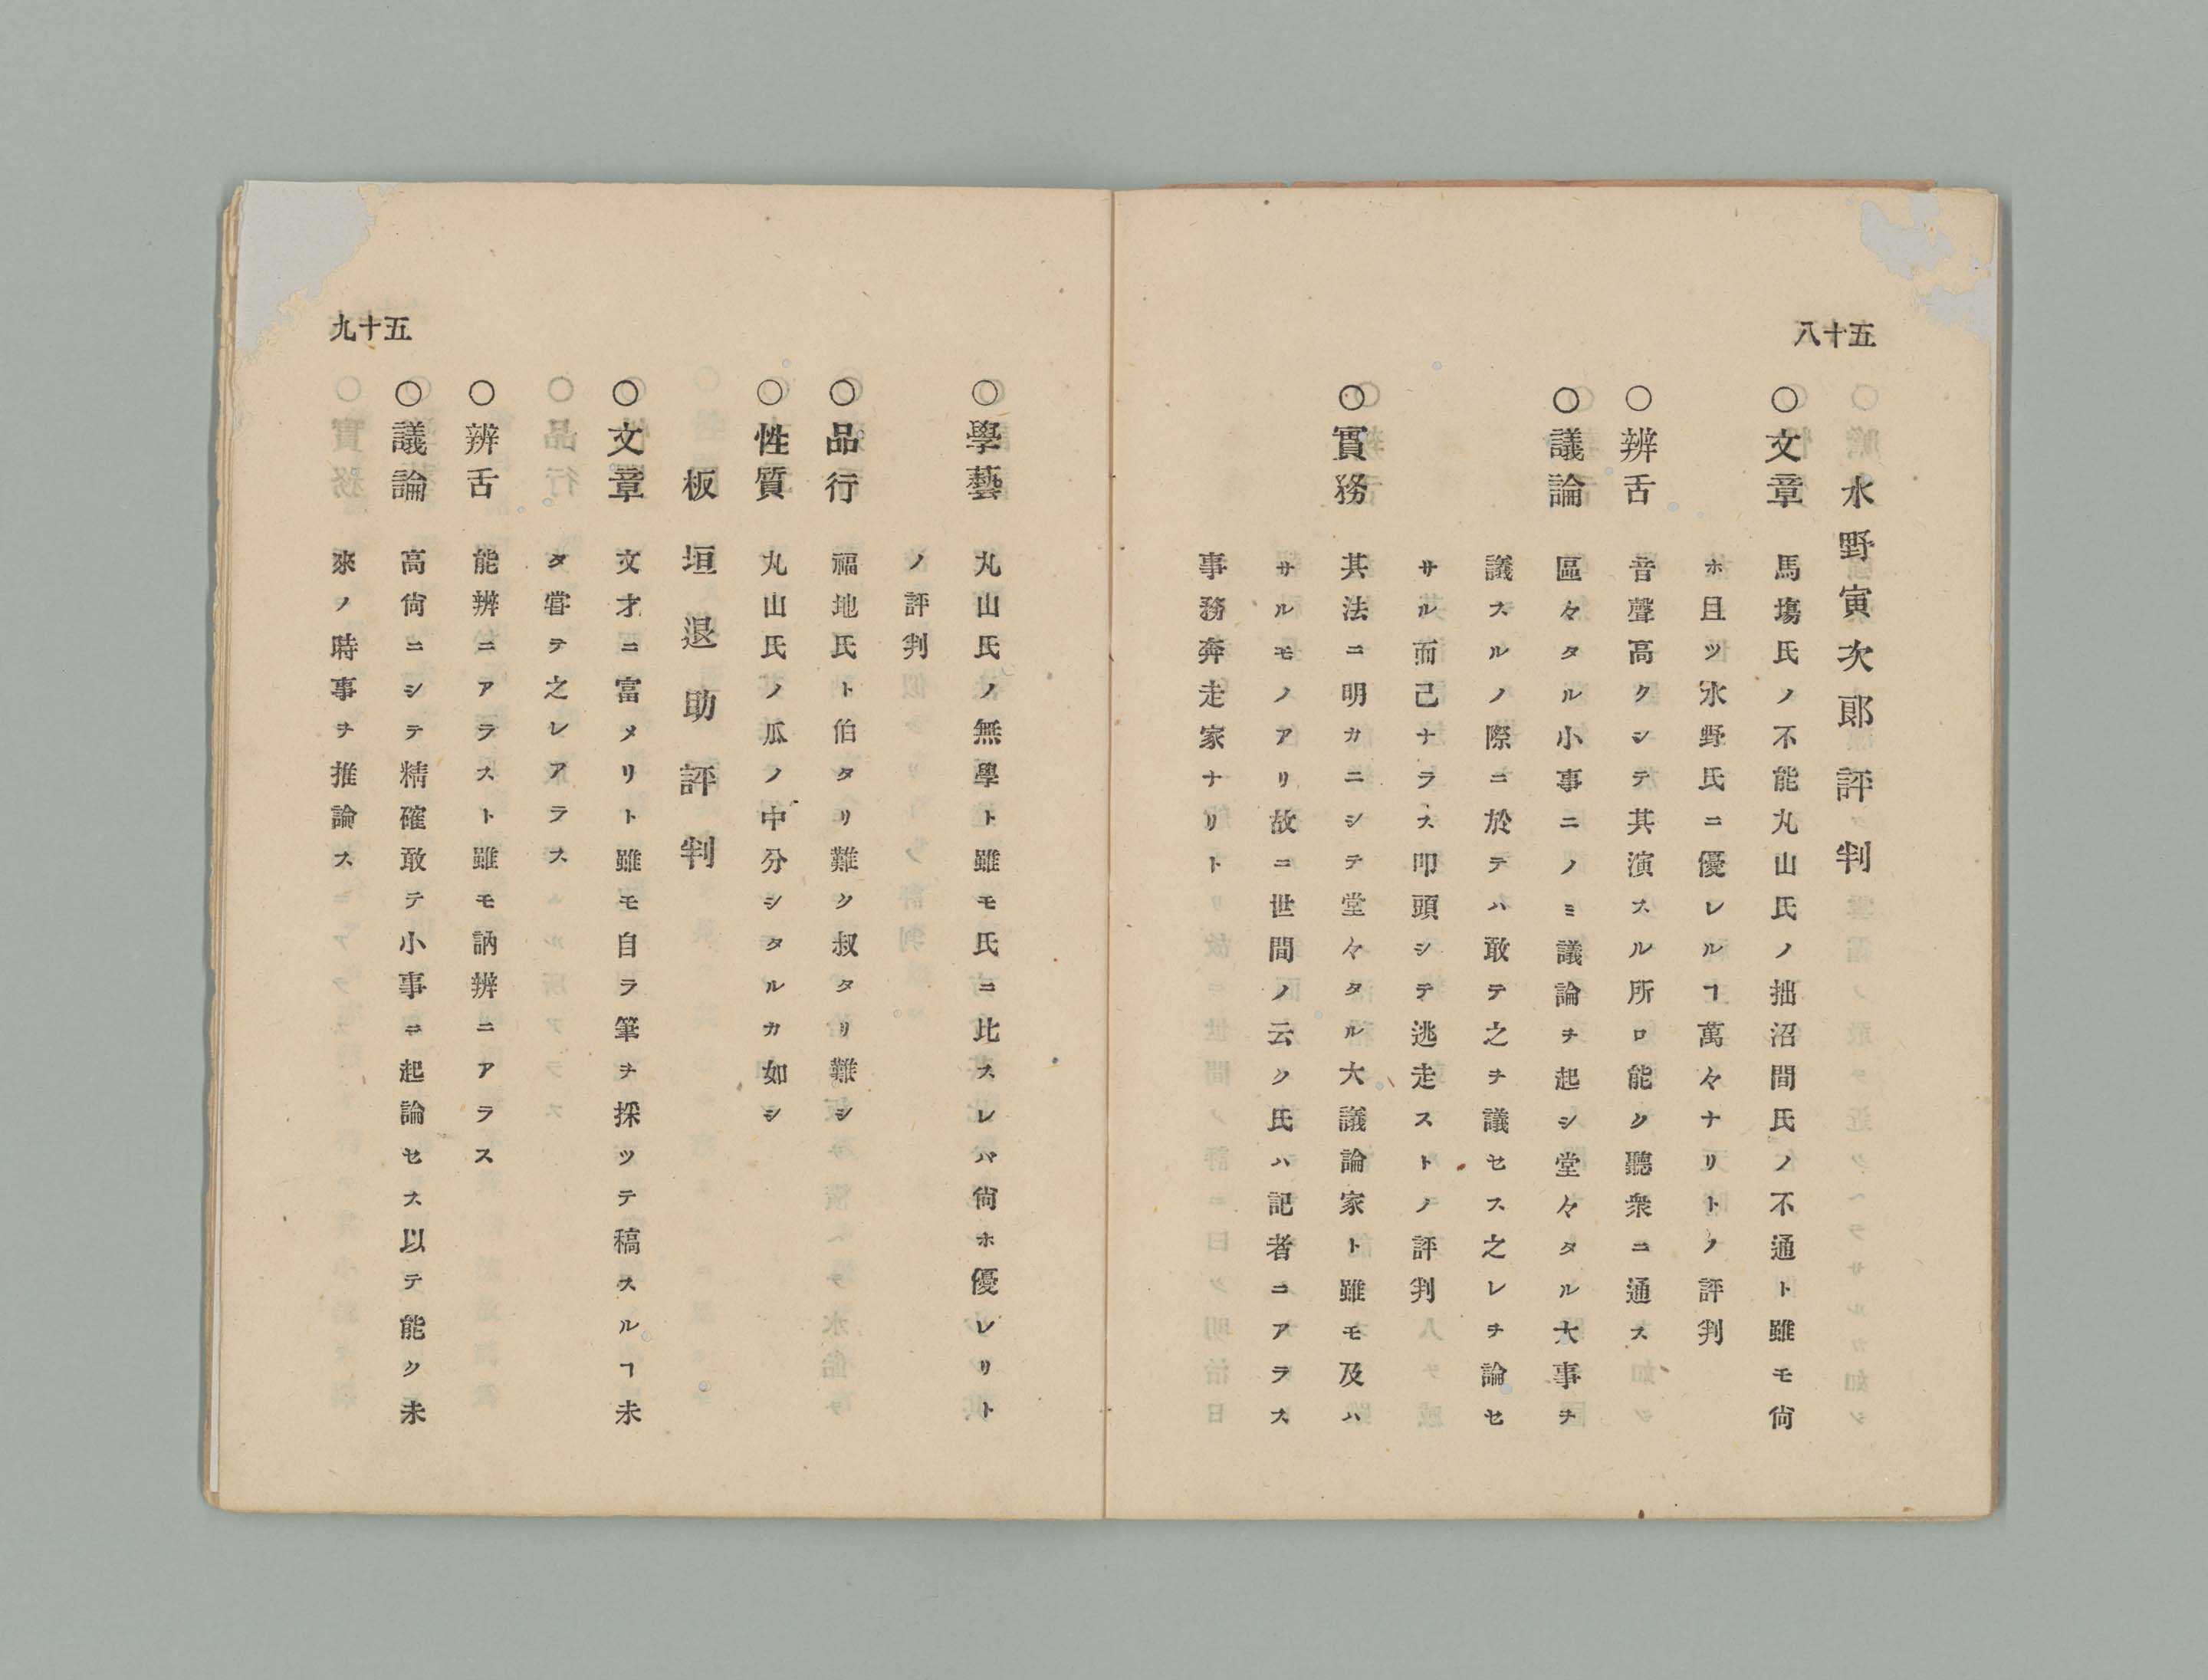 五十八
水野寅次郎評判
○文章 馬塲氏ノ不能丸山氏ノ拙沼間氏ノ不通ト雖モ尙
ホ且ツ水野氏ニ優レルヿ萬々ナリトノ評判
○辨舌 音聲高クシテ其演スル所ロ能ク聽衆ニ通ス
○議論 區々タル小事ニノミ議論ヲ起シ堂々タル大事ヲ
議スルノ際ニ於テハ敢テ之ヲ議セス之レヲ論セ
サル而己ナラス叩頭シテ逃走ストノ評判
○實務 其法ニ明カニシテ堂々タル大議論家ト雖モ及ハ
サルモノアリ故ニ世間ノ云ク氏ハ記者ニアラス
事務奔走家ナリト
五十九
○學藝 丸山氏ノ無學ト雖モ氏ニ比スレハ尙ホ優レリト
ノ評判
○品行 福地氏ト伯タリ難ク叔タリ難シ
○性質 丸山氏ノ瓜ノ中分シタルカ如シ
板垣退助評判
○文章 文才ニ富メリト雖モ自ラ筆ヲ採ツテ稿スルヿ未
タ甞テ之レアラス
○辨舌 能辨ニアラスト雖モ訥辨ニアラス
○議論 高尙ニシテ精確敢テ小事ニ起論セス以テ能ク未
來ノ時事ヲ推論ス